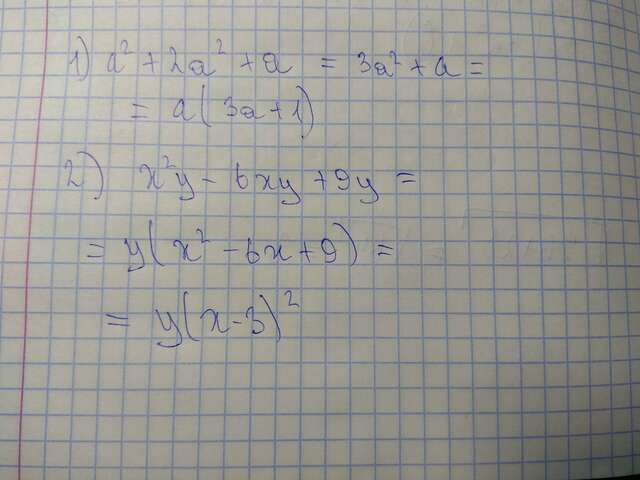 1) a² + 2a² + a = 3a² + a =
= a(3a+1)
2) x²y - 6xy + 9y =
= y(x² - 6x + 9) =
= y(x-3)²